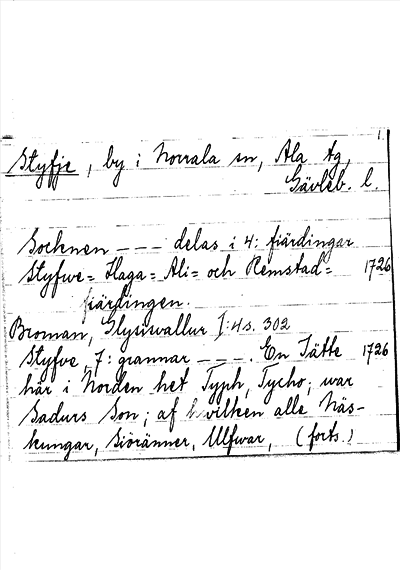 1.
Styfje, by i Norrala sn, Ala tg,
Gävleb. l.
Socknen --- delas i 4: fjärdingar
Styfwe= Haga= Ali= och Remstad= 1726
fjärdingen.
Broman, Glysisvallur I:4 s. 302
Styfve, 7: grannar ---. En Jätte 1726
här i Norden het Typh, Tycho; war
Sadurs Son; af hvilken alle Näs-
kungar, Siöränner, Ulfwar, (forts.)